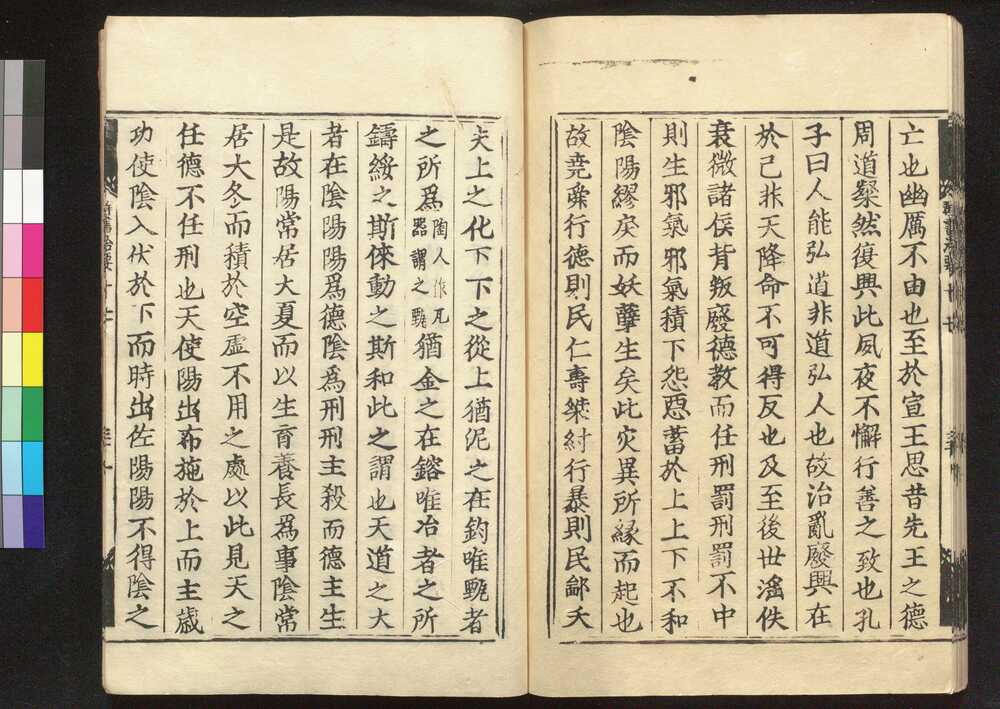 亡也幽厲不由也至於宣王思昔先王之德
周道粲然復興此夙夜不懈行善之致也孔
子曰人能弘道非道弘人也故治亂廢興在
於己非天降命不可得反也及至後世滛佚
衰微諸侯背叛廢德教而任刑罰刑罰不中
則生邪氣邪氣積下怨惡蓄於上上下不和
陰陽繆戾而妖孽生矣此灾異所緣而起也
故堯舜行德則民仁壽桀紂行暴則民鄙夭
夫上之化下下之從上猶泥之在鈞唯甄者
之所爲陶人作瓦器謂之甄猶金之在鎔唯冶者之所
鑄綏之斯倈動之斯和此之謂也天道之大
者在陰陽陽爲德陰爲刑刑主殺而德主生
是故陽常居大夏而以生育養長爲事陰常
居大冬而積於空虛不用之處以此見天之
任德不任刑也天使陽出布施於上而主歲
功使陰入伏於下而時出佐陽陽不得陰之